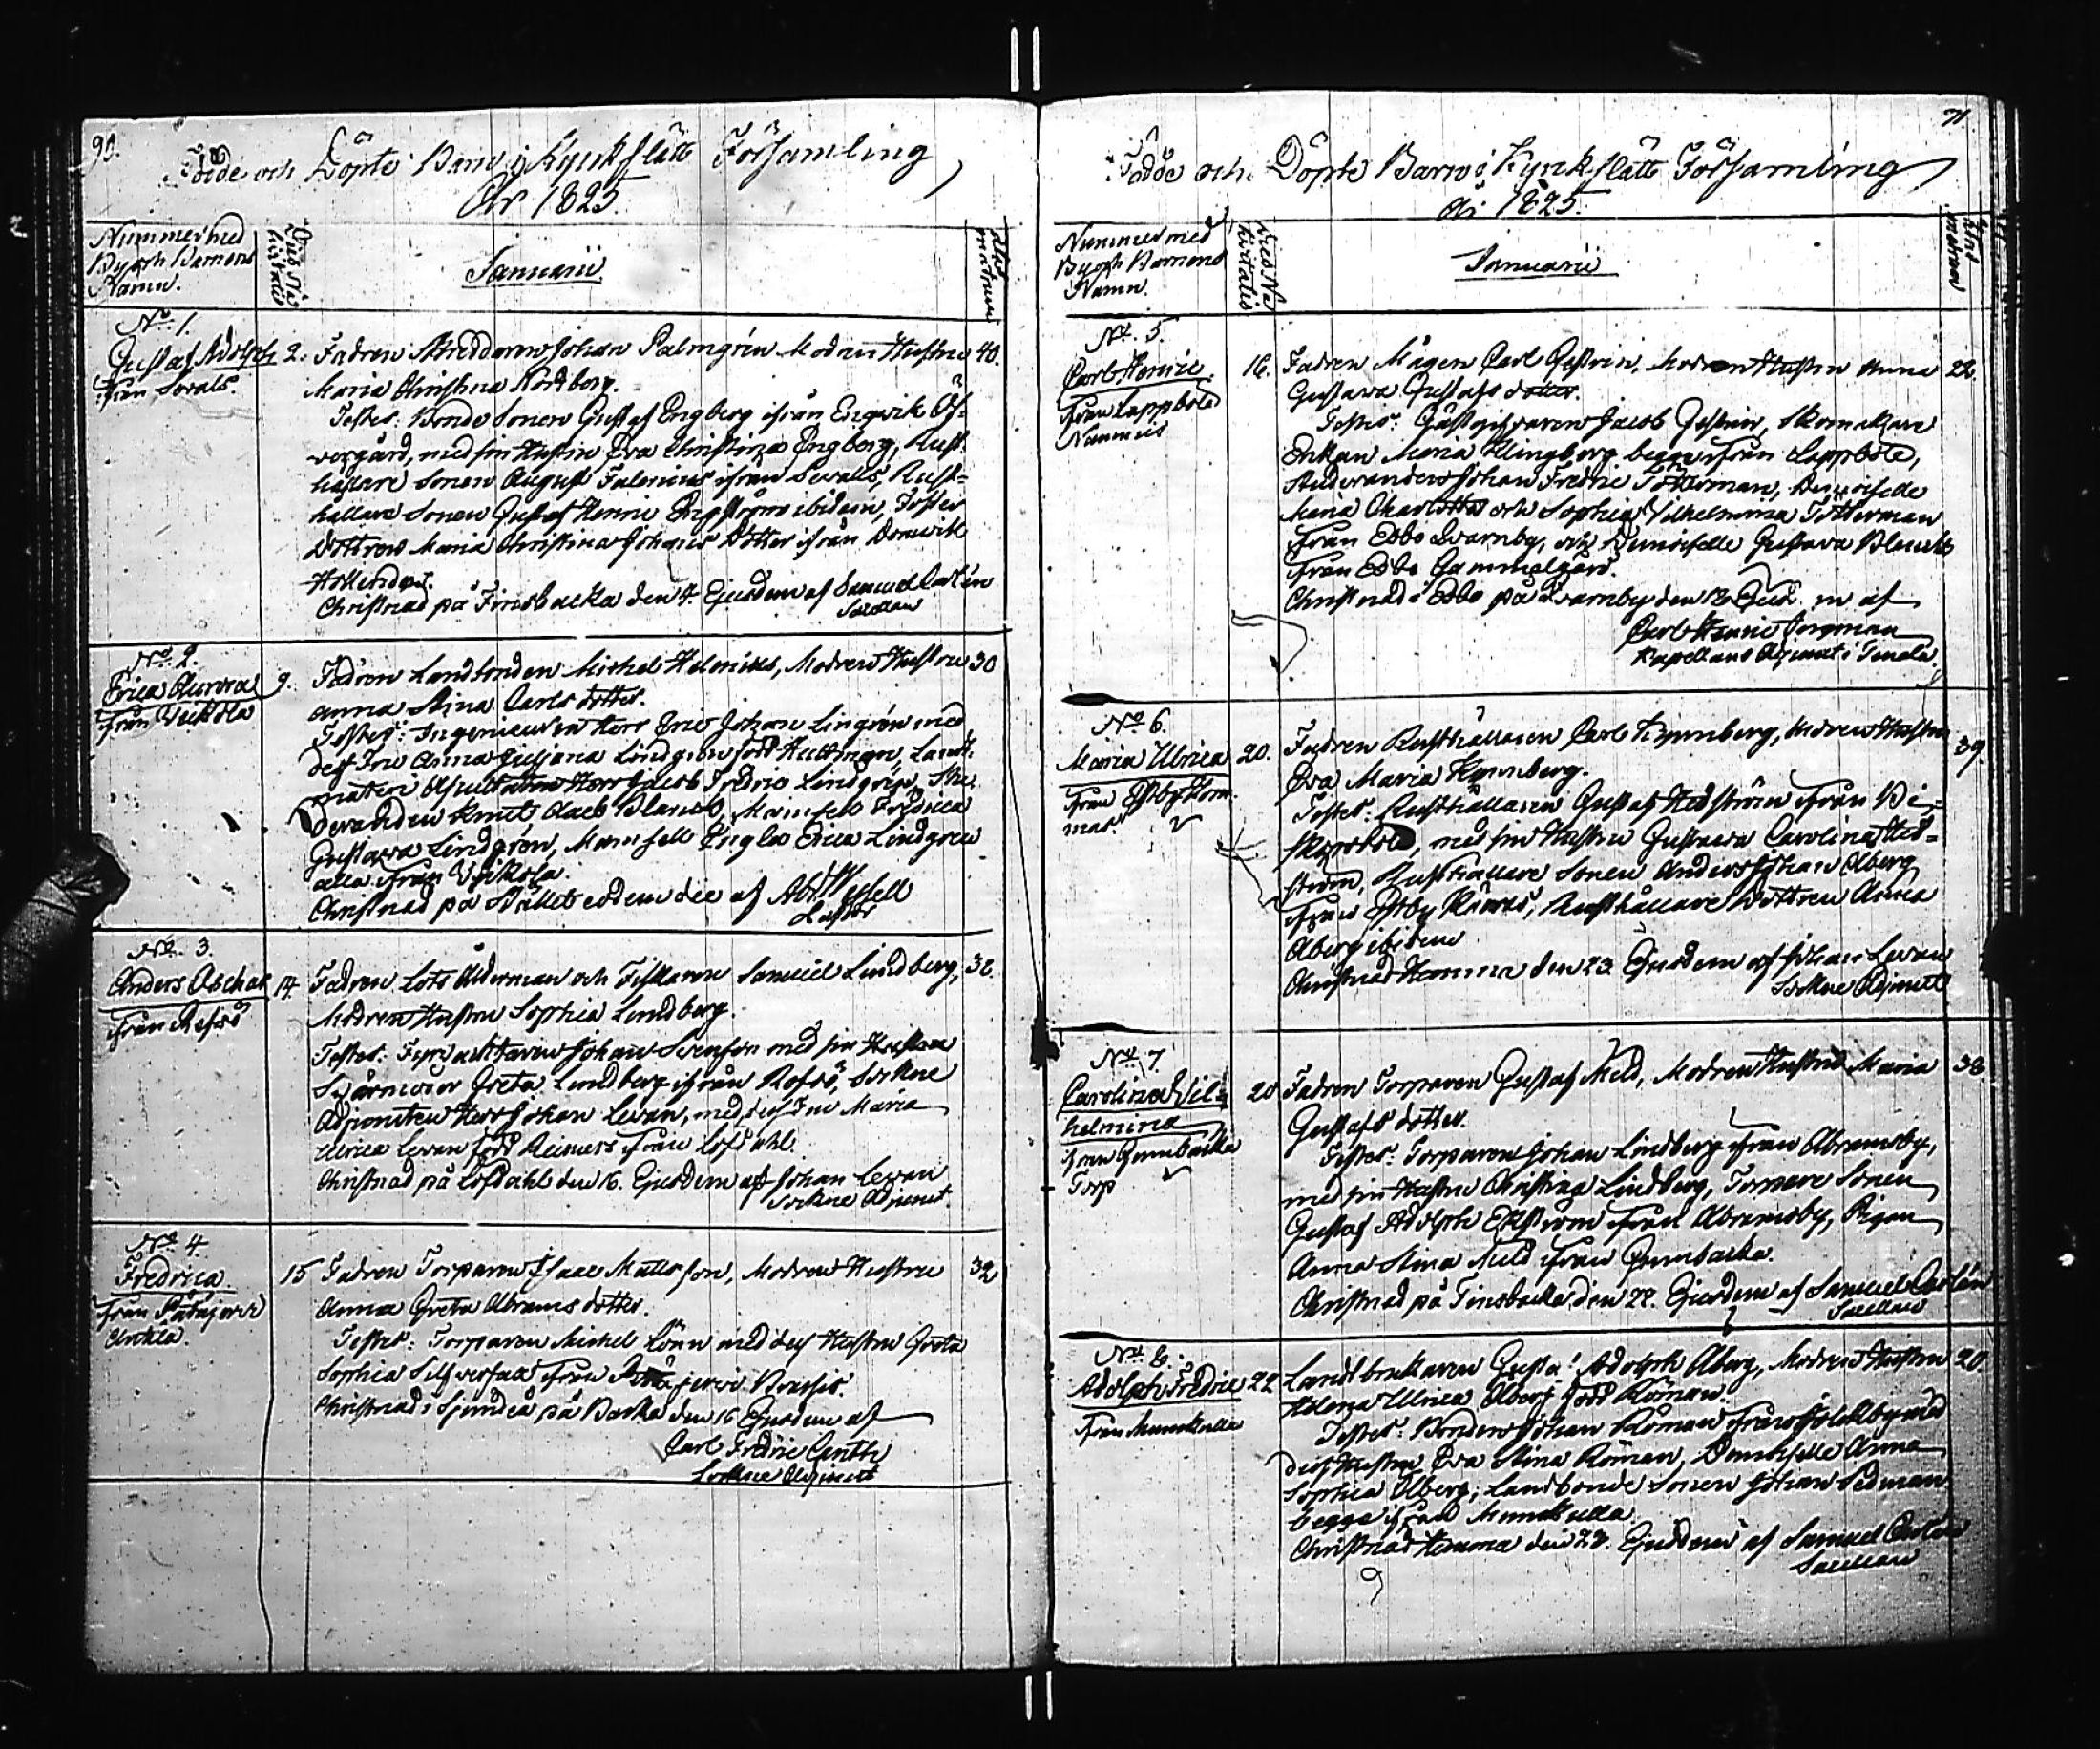 90.
Födde och Döpte Barn i Kyrkslätt Församling
År 1825.
Nummer med
Byoch Barnens
Namn.
Dies Na
tivitatis
Januarii
ætas
matrum
No. 1.
Gustaf Adolph
från Sorals.
2. Fadren Skreddaren Johan Palmgrén Modren Hustru 40.
Maria Christina Nordberg.
Testes: Bonde Sonen Gustaf Engberg ifrån Engvik Öf-
vergård, med sin Hustru Eva Christina Engberg, Rust-
hållare Sonen August Falenius ifrån Sevalls, Rust-
hållare Sonen Gustaf Henric Engström ibidem, Foster
Dottren Maria Christina Johans Dotter ifrån
Christnad på Finsbacka den 4. Ejusdem af Samuel Carlén
Sacellan
No. 2.
Erica Aurora
från Veikola
9. Fadren Landbonden Michel Helenius, Modren Hustru 30
Anna Stina Carls dotter.
Testes: Ingenieuren Herr Eric Johan Lingrén med
dess Fru Anna Juliana Lindgren född Huttman, Landt-
mäteri Auscultanten Herr Jacob Fredric Lindgrén, Stu-
deranden Knut Ådolph, Mamsell Fredrica
Gustava Lindgrén, Mamsell Engla Erica Lindgren
alla från Veikola
Christnad på Stället eodem die af Ab. Wessell
Pastor
No. 3.
Anders Uschar
från Refsö
14. Fadren Lots Ålderman och Fiskaren Samuel Lundberg, 38.
Modren Hustru Sophia Lundberg.
Testes: Fyrvaktaren Johan Svensson med sin Hustru
Svärmoder Greta Lundberg ifrån Refsö, Sockne
Adjuncten Herr Johan Levan, med dess Fru Maria
Ulrica Levan född Reimers från Lofdahl.
Christnad på Lofdahl den 16. Ejusdem af Johan Levan
Sockne Adjunct.
No. 4.
Fredrica.
från Pätäjerve
Ankla.
15 Fadren Torparen Isaac Matts son, Modren Hustru 32
Anna Greta Abrams dotter.
Testes: Torparen Michel Lönn med dess Hustru Greta
Sophia Silfversax från
Christnad i Sjundeå på Backa den 16 Ejusdem af
Carl Fredric Canth
Sockne Adjunct
71.
Födde och Döpte Barn i Kyrkslätt Församling
År 1825.
Nummer med
Byoch Barnens
Namn.
Dies Na
tivitatis
Januarii
ætas
matrum
No. 5.
Carl Henric.
från Lappböle
16. Fadren Mågen Carl Qvistrin, Modren Hustru Anna 22.
Gustava Gustafs dotter.
Testes: Gästgifvaren Jacob Qvistrin, Skomakare
Enkan Maria Klingberg begge ifrån Lappböle,
Studeranden Johan Fredric Tötterman, Demoiselle
Maria Charlotta och Sophia Vilhelmina Tötterman
från Esbo Qvarnby, och Demoiselle Gustava
från Esbo Gammelgård.
Christnad i Esbo på Qvarnby den 18 Ejusdem af
Carl Henric Forsman
Kapellans Adjunct i Tenala.
No. 6.
Maria Ulrica
från Estby Hem-
mar.
20. Fadren Rusthållaren Carl Kynnberg, Modren Hustru 39.
Eva Maria Kynnberg.
Testes: Rusthållaren Gustaf Hedström från Bi-
skopsböle, med sin Hustru Gustava Carolina Hed-
ström, Rusthållare Sonen Anders Johan Åberg
från Estby Klåvus, Rusthållare Dottren Anna
Åberg ibidem
Christnad Hemma den 23. Ejusdem af Johan Levan
Sockne Adjunct
No. 7.
Carolina Vil-
helmina
från Gunnbacka
Torp
20 Fadren Torparen Gustaf Meld, Modren Hustru Maria 38.
Gustafs dotter.
Testes: Torparen Johan Lindberg från Abramsby,
med sin Hustru Christina Lindberg, Torpare Sonen
Gustaf Adolph Ekström från Abramsby, Pigan
Anna Stina Meld från Gunnbacka.
Christnad på Finsbacka den 22. Ejusdem af Samuel Carlén
Sacellan
No. 8.
Adolph Fredric
från Munkkulla
22 Landtbrukaren Gustaf Adolph Åberg, Modren Hustru 20.
Helena Ulrica Åberg född Röman.
Testes: Bonden Johan Röman från med
dess Hustru Eva Stina Röman, Demoiselle Anna
Sophia Åberg, Landbonde Sonen Johan Sedman
begge ifrån Munkkulla.
Christnad Hemma den 23. Ejusdem af Samuel Carlén
Sacellan